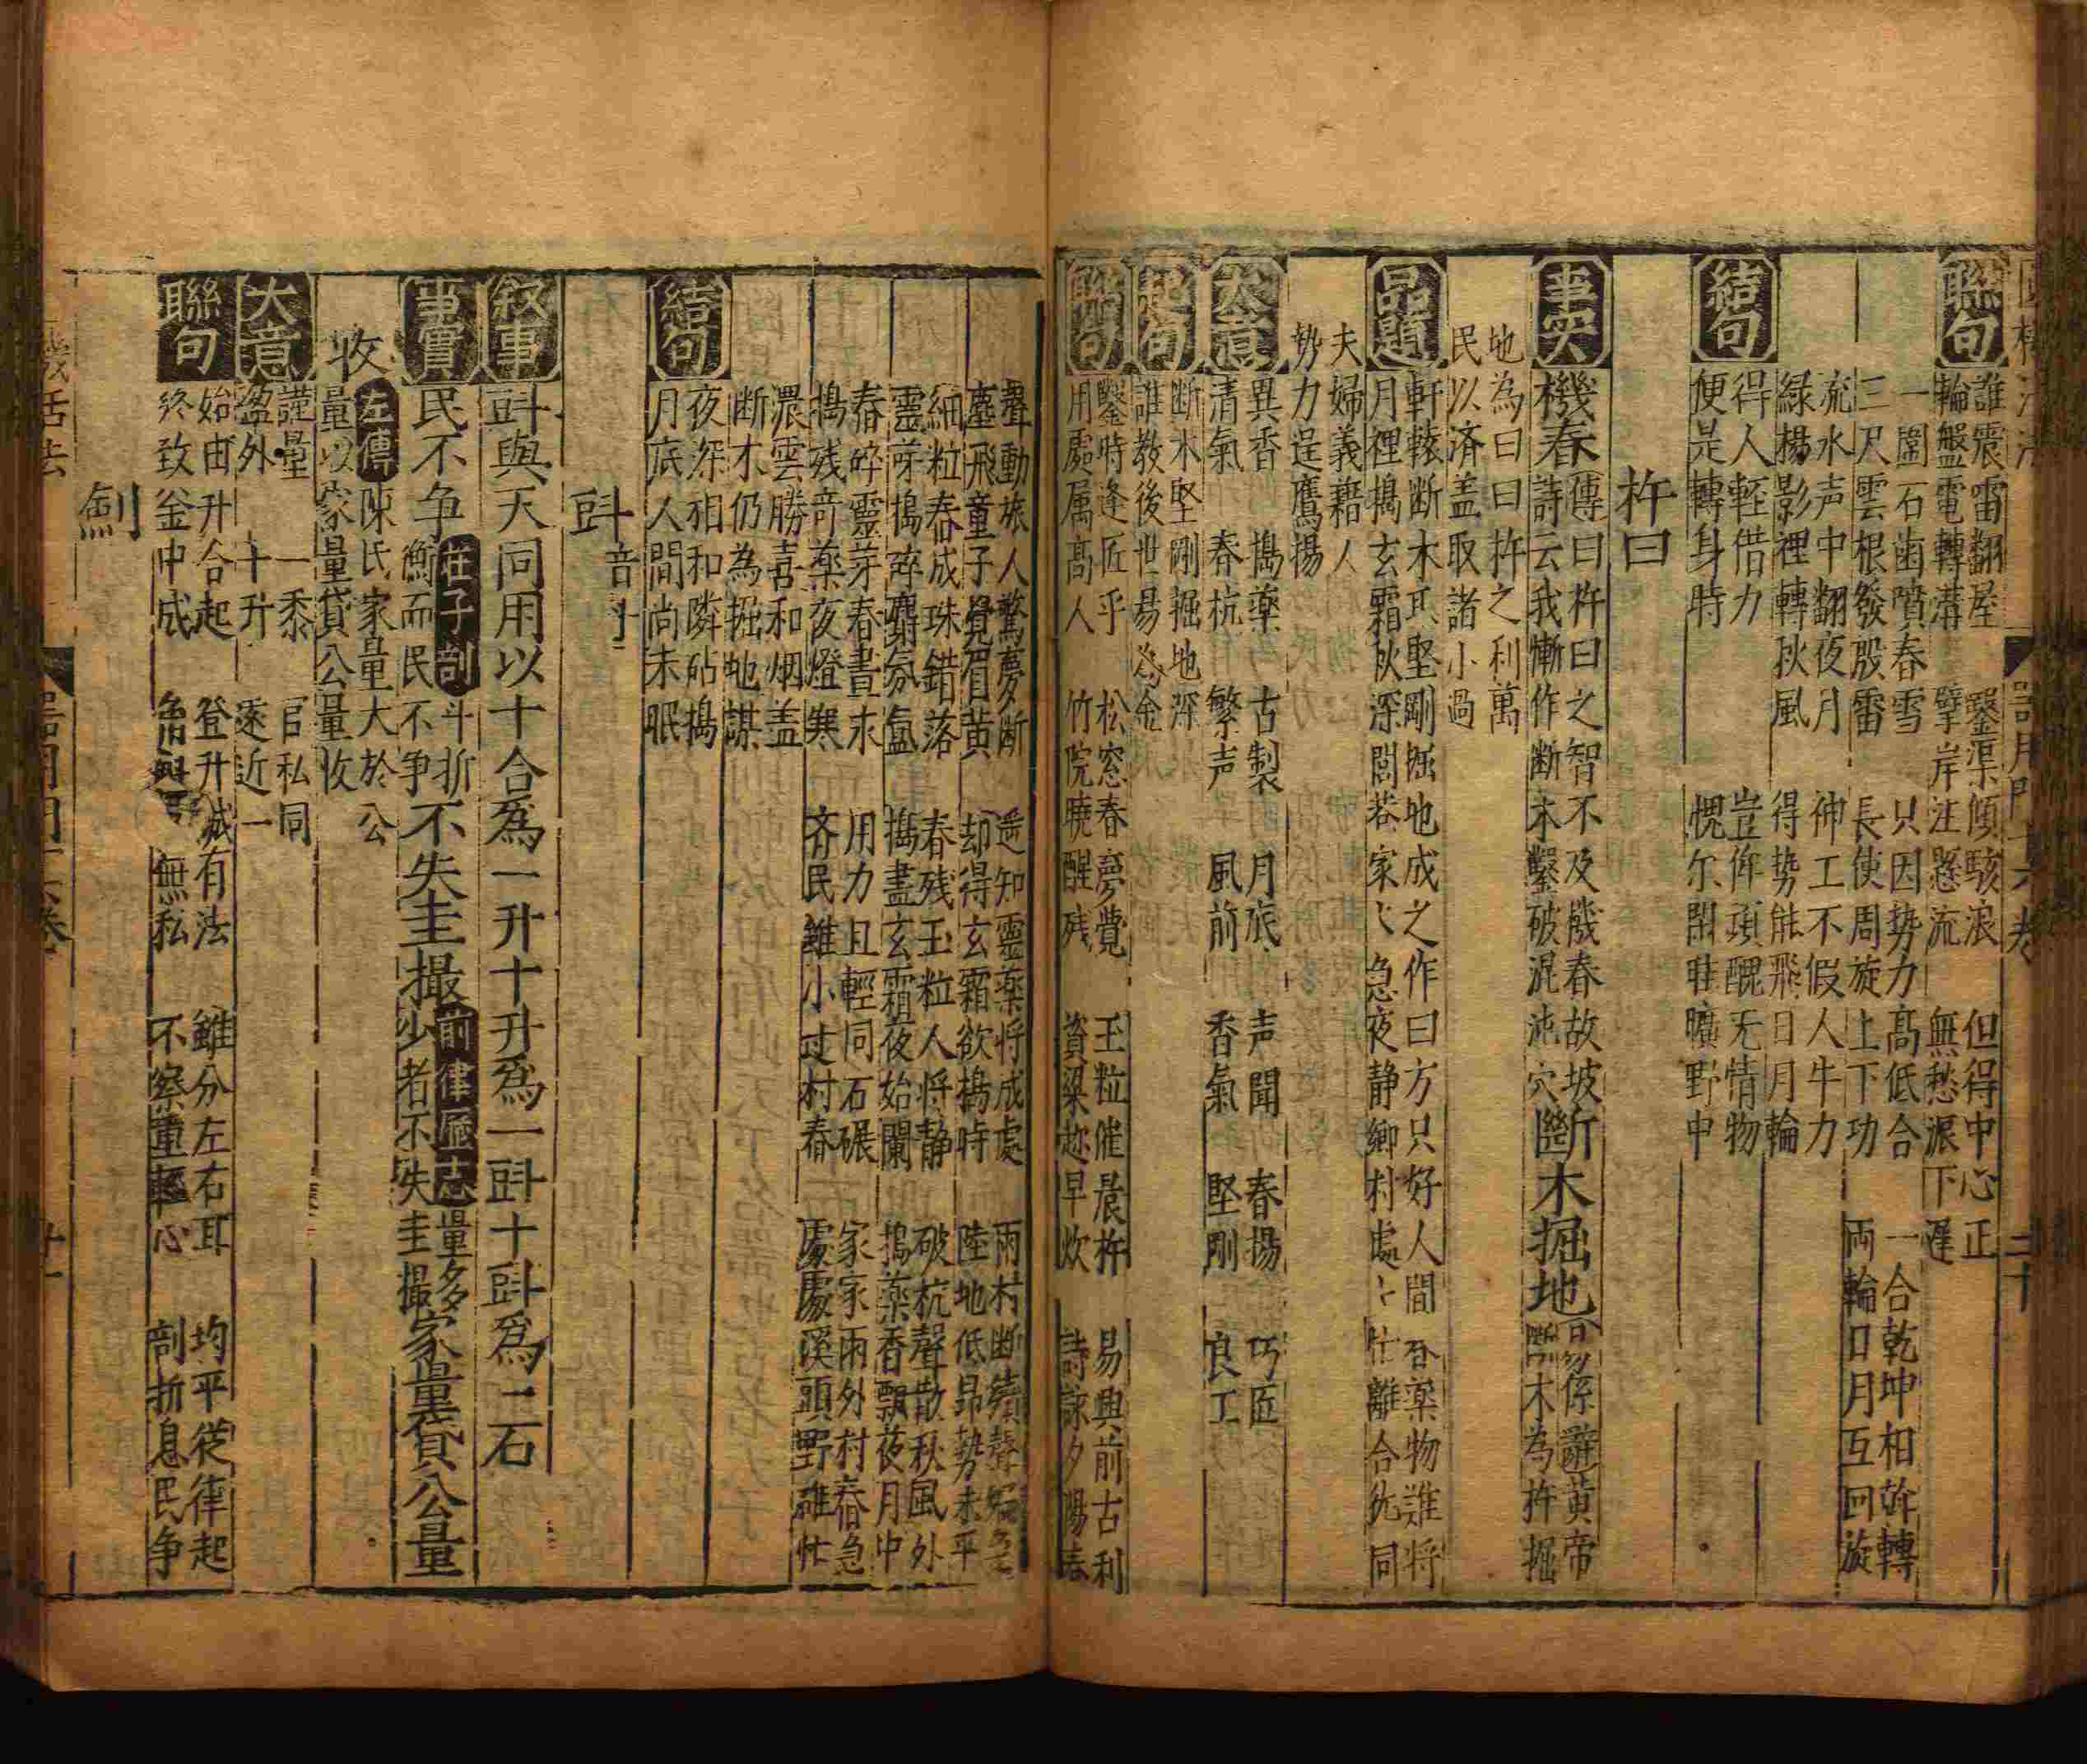 聯句
誰震雷翻屋 鑿渠傾駭浪 但得中心正
輪盤電轉溝 擘岸注懸流 無愁派下遲
一圍石齒噴春雪 只因勢力高低合 一合乾坤相斡轉
三尺雲根發殷雷 長使周旋上下功 両輪日月互回旋
流水声中翻夜月 神工不假人牛力
綠楊影裡轉秋風 得勢能飛日月輪
結句
得人輕借力 豈侔頑醜无情物
便是轉身時 愧尔閑眠曠野中
杵臼
事實
機舂 傳曰杵臼之智不及機舂故坡
詩云我慚作断木鑿破混沌穴
斷木掘地 黃帝
断木為杵掘
地為臼臼杵之利萬
民以済盖取諸小過
品題
軒轅断木其堅剛掘地成之作臼方只好人間 藥物誰将
月裡擣玄霜秋深閭巷家〻急夜静鄉村處〻忙離合仇同
夫婦義藉人
勢力逞鷹揚
大意
異香 搗藥 古製 月旅 声聞 舂揚 巧匠
清氣 舂杭 繁声 風前 香氣 堅剛 良工
起句
断木堅剛掘地深
誰教後世易為金
聯句
鑿時逢匠乎 松窓春夢覺 玉粒催晨杵 易興前古利
用處属高人 竹院曉醒残 資梁趂早炊 詩詠夕陽舂
聲動旅人驚夢断 遥知靈藥将成處 雨村断續聲
塵飛童子覺眉黄 却得玄霜欲擣時 陸地低昻勢未平
細粒舂成珠錯落 舂残玉粒人将静 破杭聲散秋風外
靈芽搗碎麝氛氳 擣盡玄霜夜始闌 搗藥香飄夜月中
舂碎靈芽春晝永 用力且輕同石碾 家家雨外村舂急
搗残竒藥夜燈寒 齐民雖小过村舂 處處溪頭野碓忙
濃雲勝喜和烟盖
断木仍為掘地謀
結句
夜深相和隣砧搗
月底人間尚未眠
㪷 音斗
叙事
㪷與天同用以十合為一升十升為一㪷十㪷為一石
事實
民不争 莊子剖斗折
衡而民不争 不失圭撮 前律歷志量多
少者不失圭撮 家量貸公量
收 左傳陳氏家量大於公
量以家量貸公量收
大意
謹量 一黍 官私同
盈外 十升 遠近一
聯句
始由升合起 登升減有法 雖分左右耳 均平従律起
終致釜中成 無私 不察重輕心 剖折息民争
劍